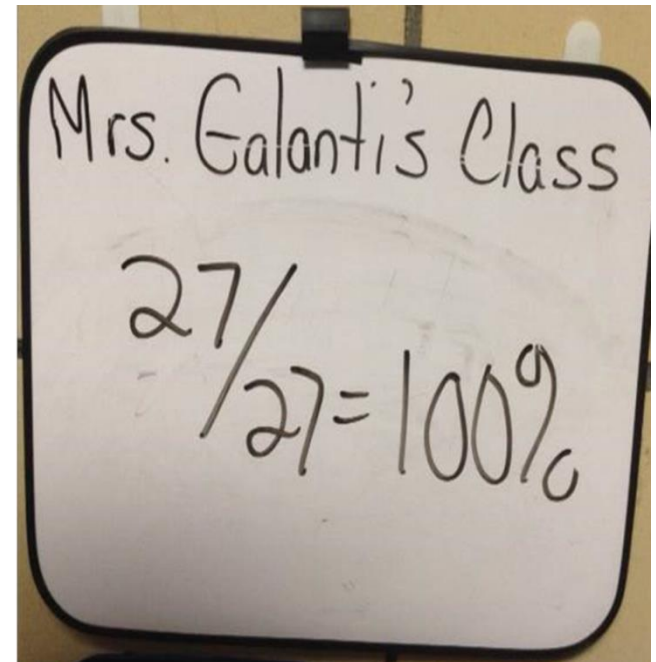 Mrs. Galanti's Class
27/27=100%